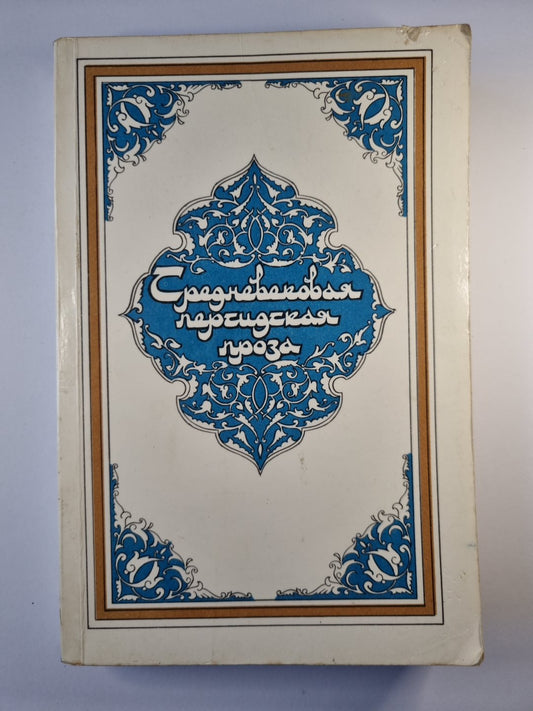 Средневековая
персидская
проза